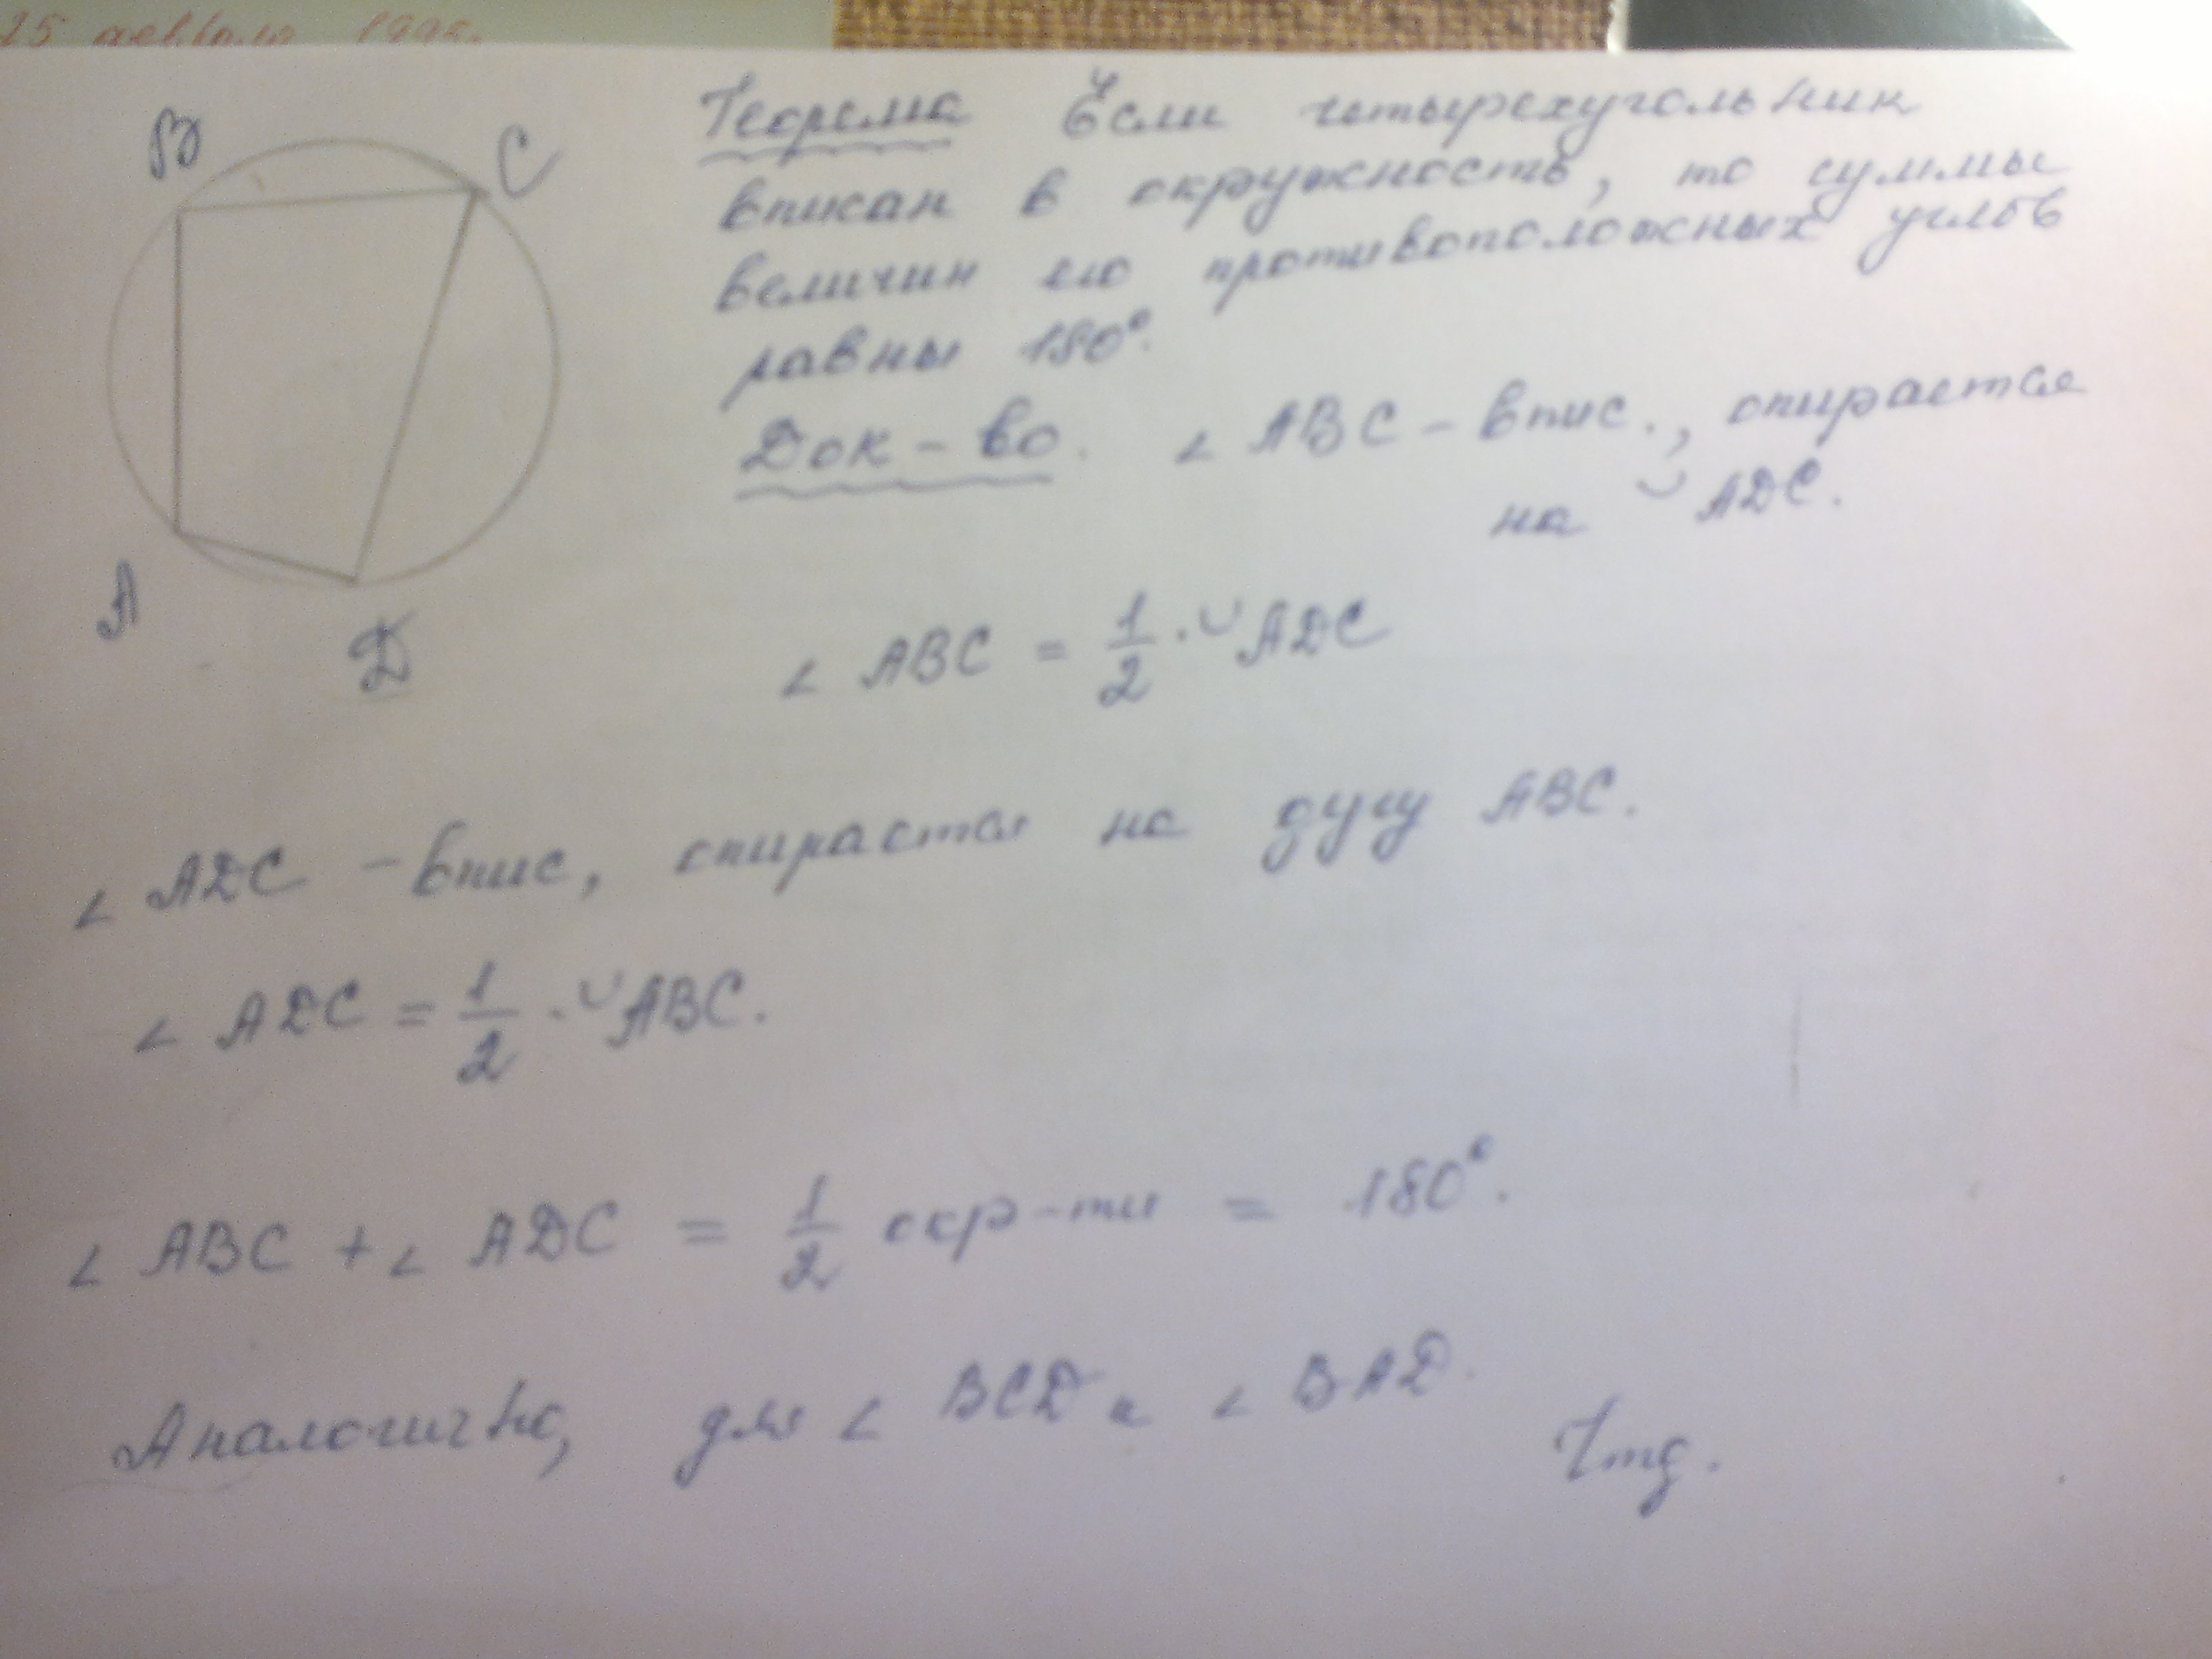 25 февраля 199
B
C
A
D
Теорема Если четырехугольник
вписан в окружность, то суммы
величин его противоположных углов
равны 180°.
Док-во. ∠ ABC – впис., опирается
на ◡ ADC.
∠ ABC = 1/2 · ◡ ADC
∠ ADC – впис, опирается на дугу ABC.
∠ ADC = 1/2 · ◡ ABC.
∠ ABC + ∠ ADC = 1/2 окр-ти = 180°.
Аналогично, для ∠ BCD и ∠ BAD.
Чтд.